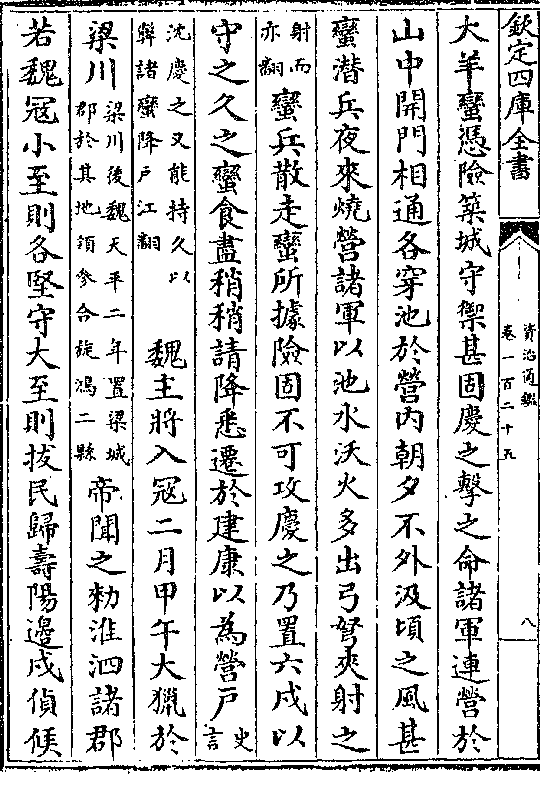 欽定四庫全書
資治通鑑
卷一百二十五
八
大羊蠻憑險築城守禦甚固慶之擊之命諸軍連營於
山中開門相通各穿池於營內朝夕不外汲頃之風甚
蠻潛兵夜來燒營諸軍以池水沃火多出弓弩夾射之
射而
亦翻
蠻兵散走蠻所據險固不可攻慶之乃置六戍以
守之久之蠻食盡稍稍請降悉遷於建康以為營戶
史
言
沈慶之又能持久以
弊諸蠻降戶江翻
魏主將入冦二月甲午大獵於
梁川
梁川後魏天平二年置梁城
郡於其地領參合旋鴻二縣
帝聞之勑淮泗諸郡
若魏冦小至則各堅守大至則拔民歸壽陽邊戍偵候